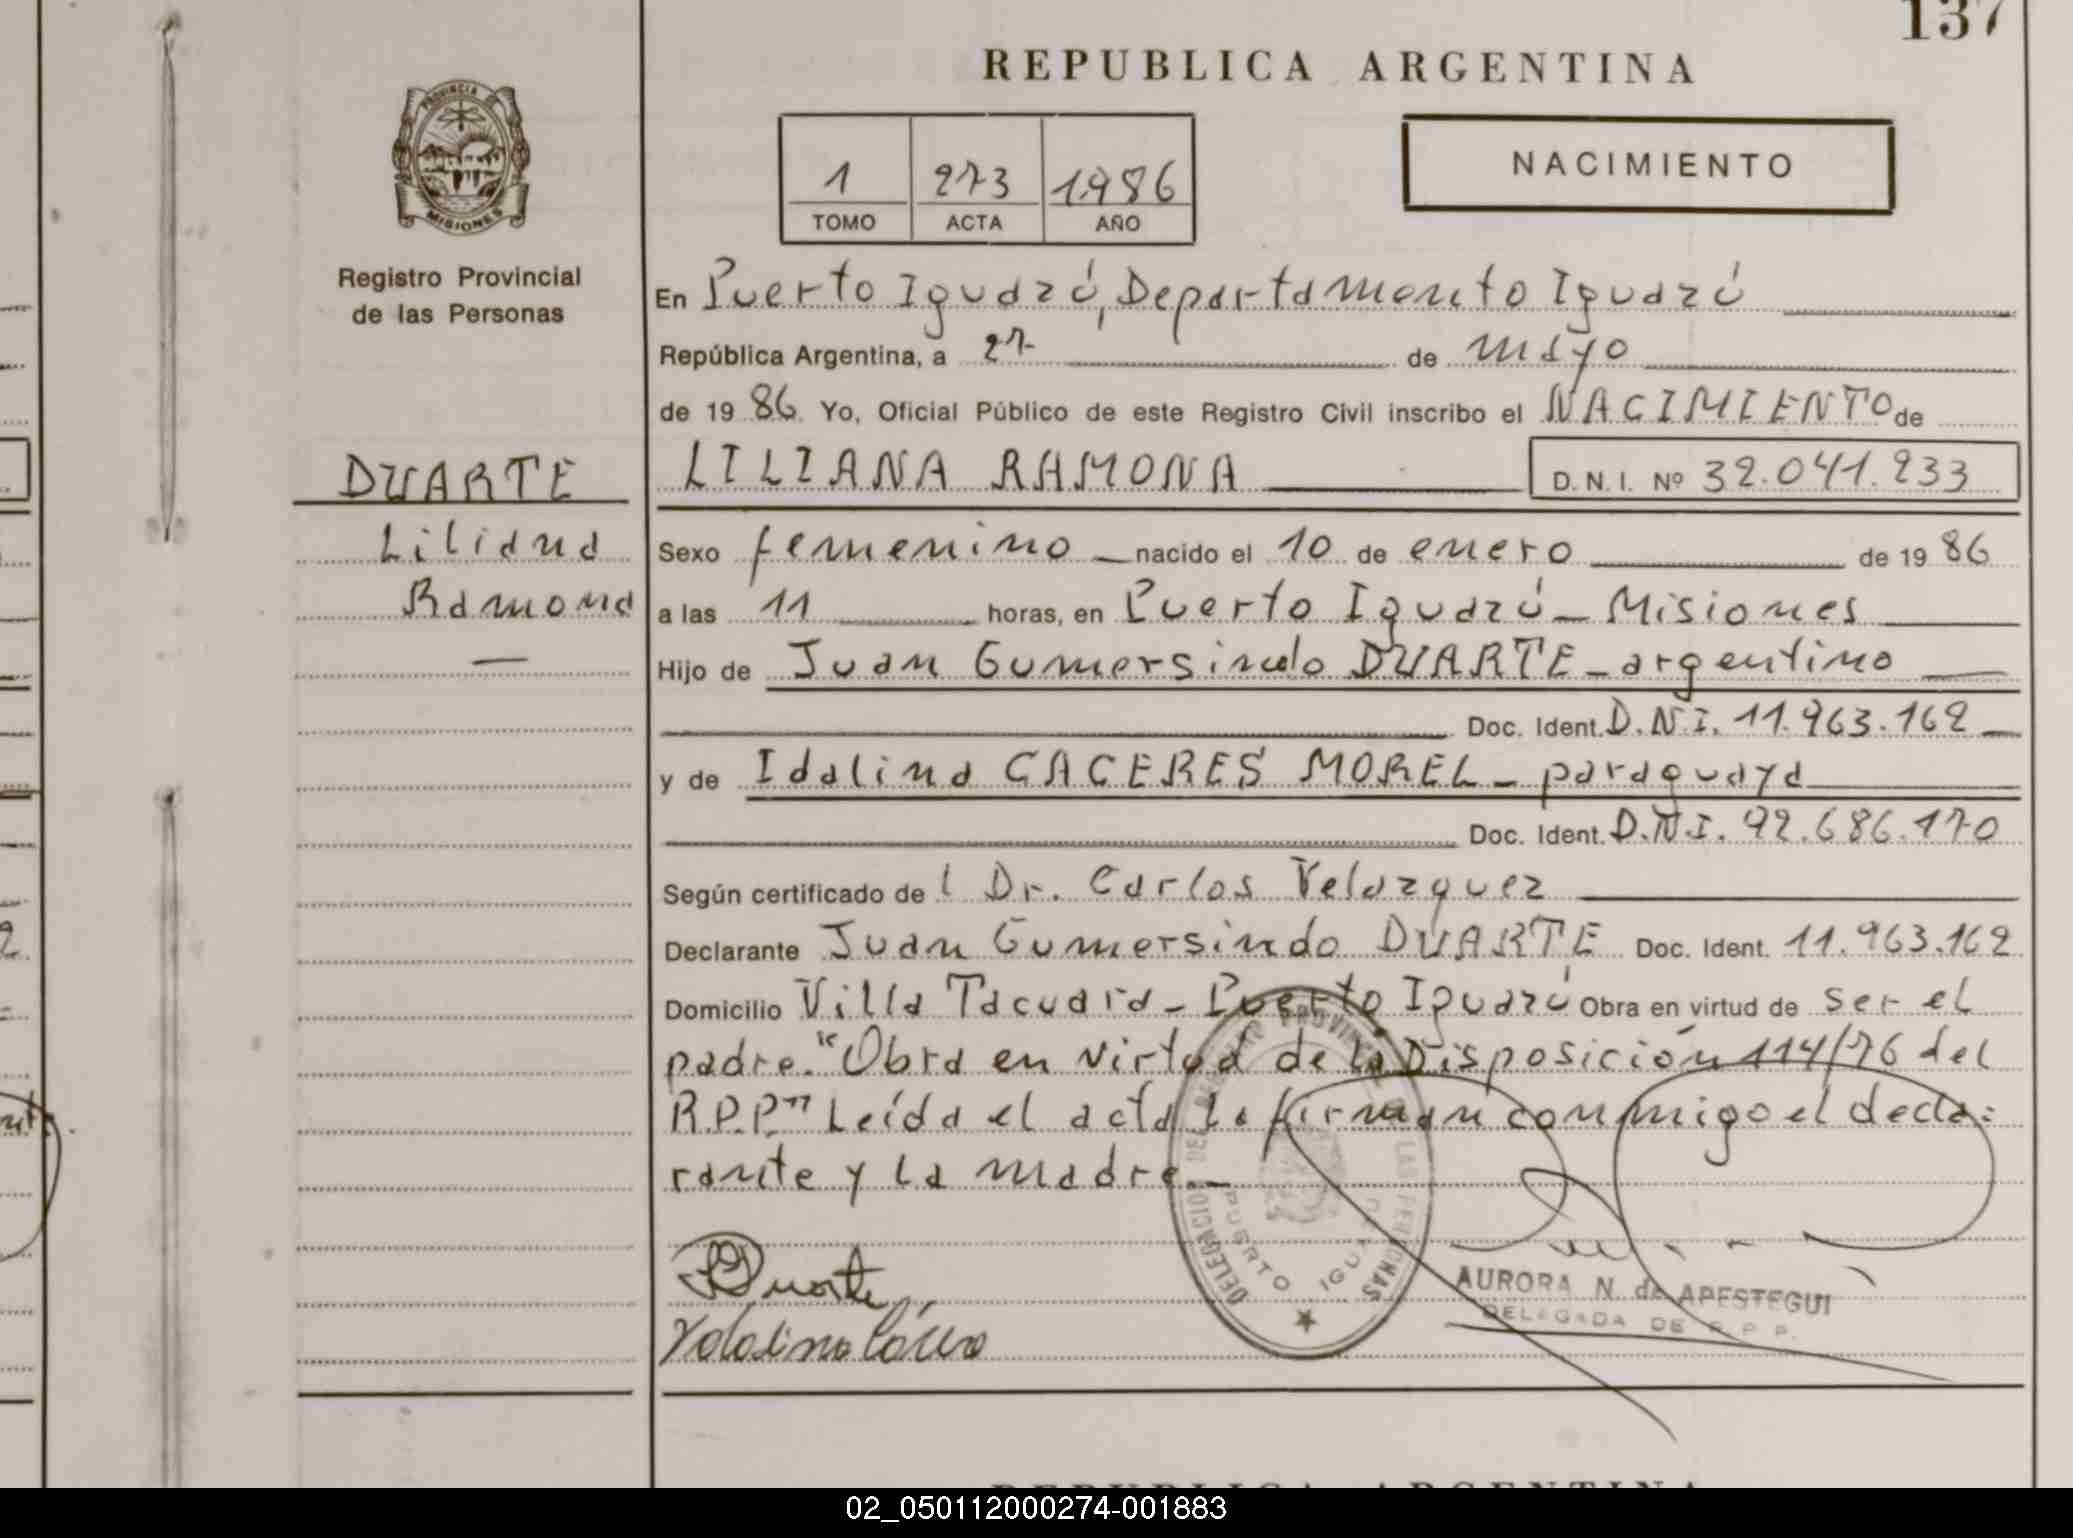 137
REPUBLICA ARGENTINA
PROVINCIA DE
MISIONES
Registro Provincial
de las Personas
1 273 1986
TOMO ACTA AÑO
NACIMIENTO
En Puerto Iguazú, Departamento Iguazú
República Argentina, a 27 de mayo
de 1986. Yo, Oficial Público de este Registro Civil inscribo el NACIMIENTO de
DUARTE
Liliana
Ramona
LILIANA RAMONA D.N.I. Nº 32.041.233
Sexo femenino nacido el 10 de enero de 1986
a las 11 horas, en Puerto Iguazú - Misiones
Hijo de Juan Gumersindo DUARTE - argentino
Doc. Ident. D.N.I. 11.963.162
y de Idalina CACERES MOREL - paraguaya
Doc. Ident. D.N.I. 92.686.170
Según certificado de l Dr. Carlos Velazquez
Declarante Juan Gumersindo DUARTE Doc. Ident. 11.963.162
Domicilio Villa Tacuara - Puerto Iguazú Obra en virtud de ser el
padre. "Obra en virtud de la Disposición 114/76 del
R.P.P." Leída el acta la firman conmigo el decla=
rante y la madre.-
DELEGACION DEL REGISTRO PROVINCIAL DE LAS PERSONAS
PUERTO IGUAZU
Duarte
AURORA N. de APESTEGUI
DELEGADA DE R.P.P.
REPUBLICA ARGENTINA
02_050112000274-001883